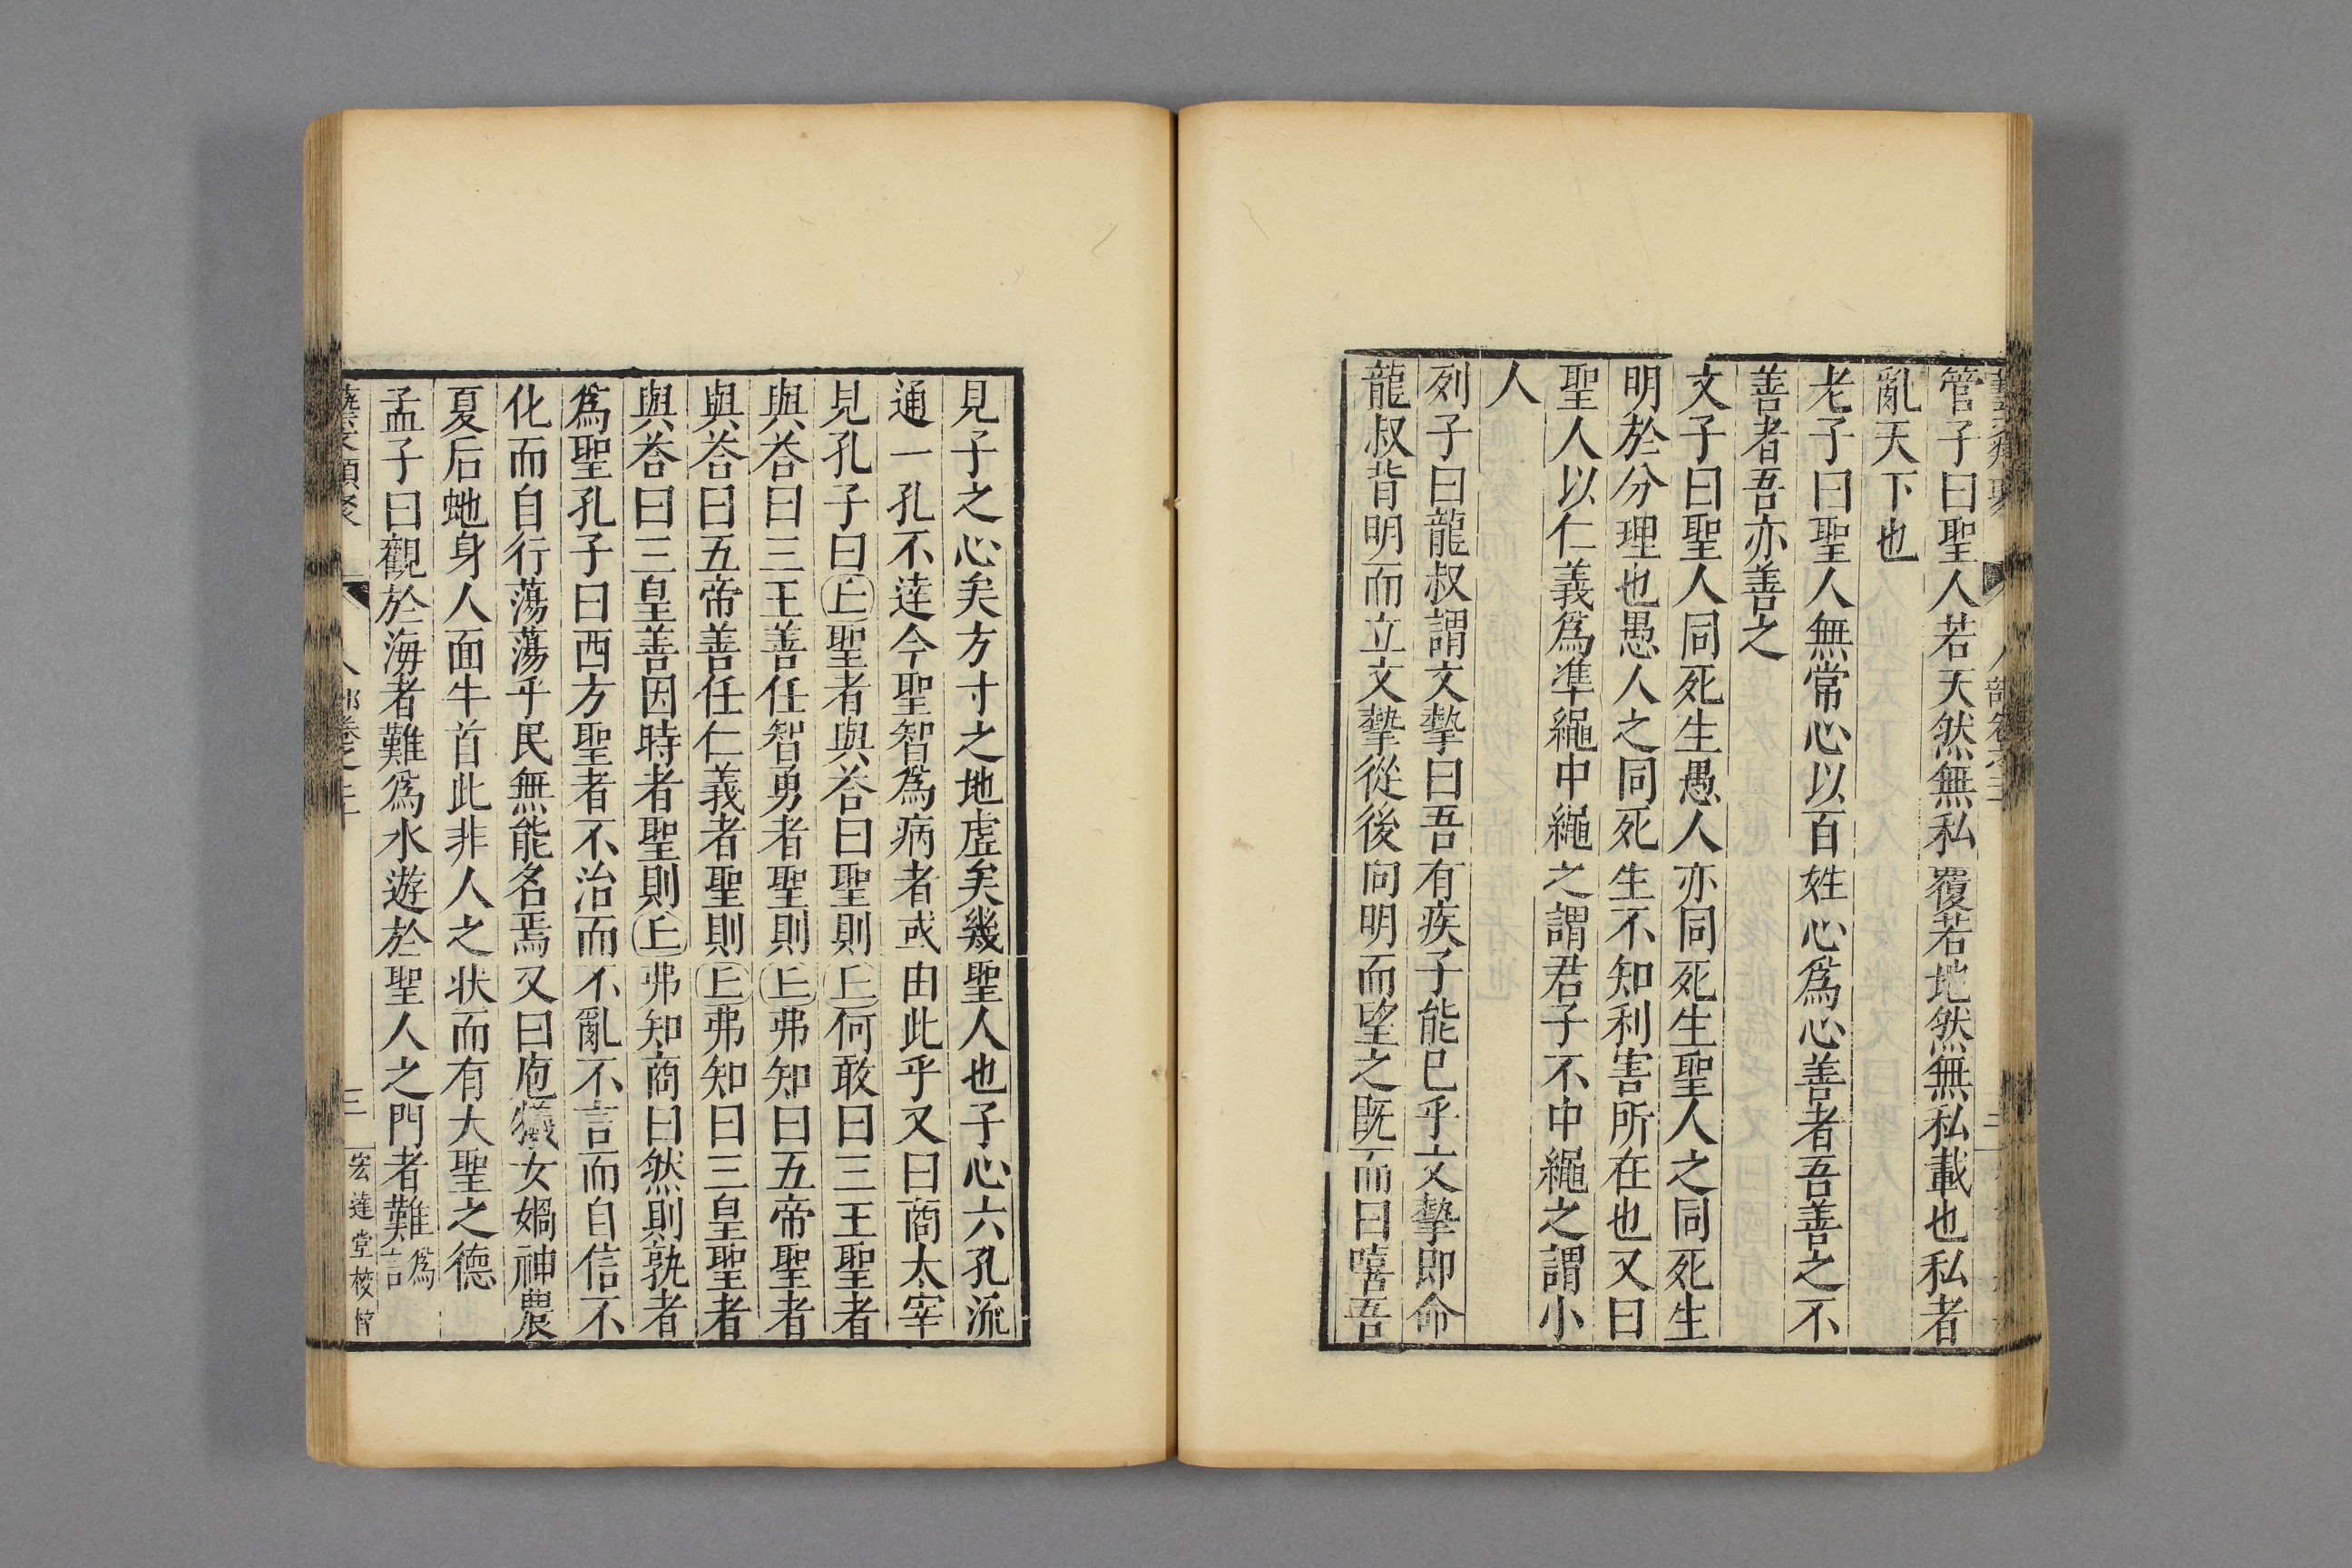 管子曰聖人若天然無私覆若地然無私載也私者
亂天下也
老子曰聖人無常心以百姓心爲心善者吾善之不
善者吾亦善之
文子曰聖人同死生愚人亦同死生聖人之同死生
明於分理也愚人之同死生不知利害所在也又曰
聖人以仁義爲準繩中繩之謂君子不中繩之謂小
人
列子曰龍叔謂文摯曰吾有疾子能已乎文摯即命
龍叔背明而立文摯從後向明而望之既而曰嘻吾
見子之心矣方寸之地虛矣幾聖人也子心六孔流
通一孔不達今聖智爲病者或由此乎又曰商太宰
見孔子曰丘聖者與荅曰聖則丘何敢曰三王聖者
與荅曰三王善任智勇者聖則丘弗知曰五帝聖者
與荅曰五帝善任仁義者聖則丘弗知曰三皇聖者
與荅曰三皇善因時者聖則丘弗知商曰然則孰者
爲聖孔子曰西方聖者不治而不亂不言而自信不
化而自行蕩蕩乎民無能名焉又曰庖犧女媧神農
夏后虵身人面牛首此非人之狀而有大聖之德
孟子曰觀於海者難爲水遊於聖人之門者難爲言
藝文類聚 人部卷之二十 三 宏達堂校